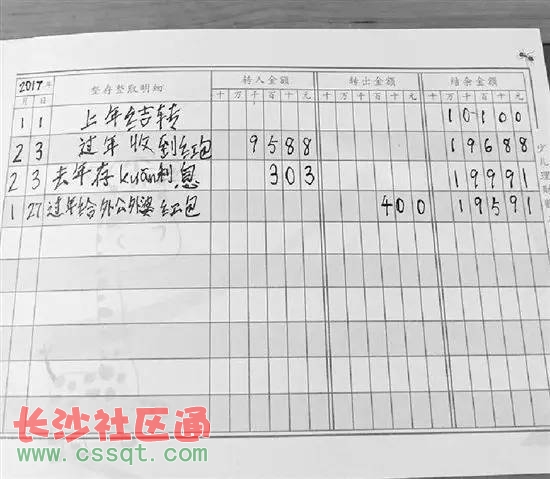 2017年 整存整取明细 转入金额 转出金额 结余金额
月 日 十 万 千 百 十 元 十 万 千 百 十 元 十 万 千 百 十 元
1 1 上年结转 10100
2 3 过年收到红包 9588 19688
2 3 去年存kuan利息 303 19991
1 27 过年给外公外婆红包 400 19591
少儿理财
长沙社区通
www.cssqt.com